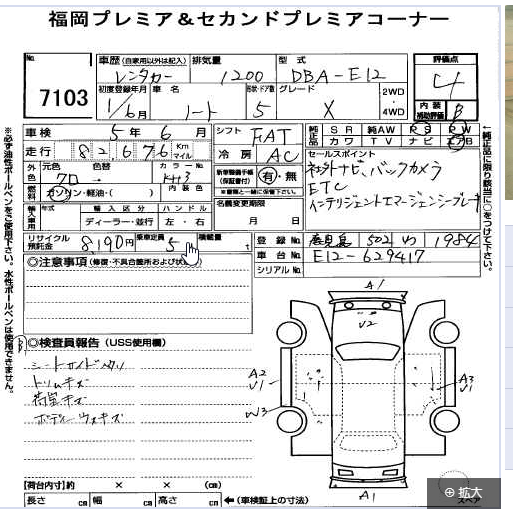 福岡プレミア＆セカンドプレミアコーナー
No. 7103
車歴 (自家用以外は記入) レンタカー
排気量 1200
型式 DBA-E12
評価点 4
内装補助評価 B
初度登録年月 1/6月
車名 ノート
形状・ドア数 5
グレード X
2WD・4WD
車検 5年 6月
シフト FAT
純正品 SR 純AW PS PW
カワ TV ナビ エアB
走行 82676 Km マイル
冷房 AC
セールスポイント
ナビ、バックカメラ
ETC
インテリジェントエマージェンシーブレーキ
外装 元色 クロ 色替 カラーNo. KH3
燃料 ガソリン・軽油・( ) 内装色
新車整備手帳(保証書付) 有・無
※書類と一緒に保管下さい。
輸入車用 年式 輸入区分 ハンドル
ディーラー・並行 左・右
名義変更期限 月 日
リサイクル預託金 8,190円
乗車定員 5
積載量 t
登録No. 鹿児島 502 わ 1984
車台No. E12-629417
シリアルNo.
◎注意事項 (修復・不具合箇所および状
◎検査員報告 (USS使用欄)
トリムキズ
荷室キズ
ボディーウスキズ
A1
V2
A2
V1
W3
A3
V1
A1
【荷台内寸】約 × × (cm)
長さ cm 幅 cm 高さ cm ←(車検証上の寸法)
スペア
拡大
※必ず油性ボールペンをご使用下さい。水性ボールペンは使用できません。
←純正品に限り該当に○をつけて下さい。